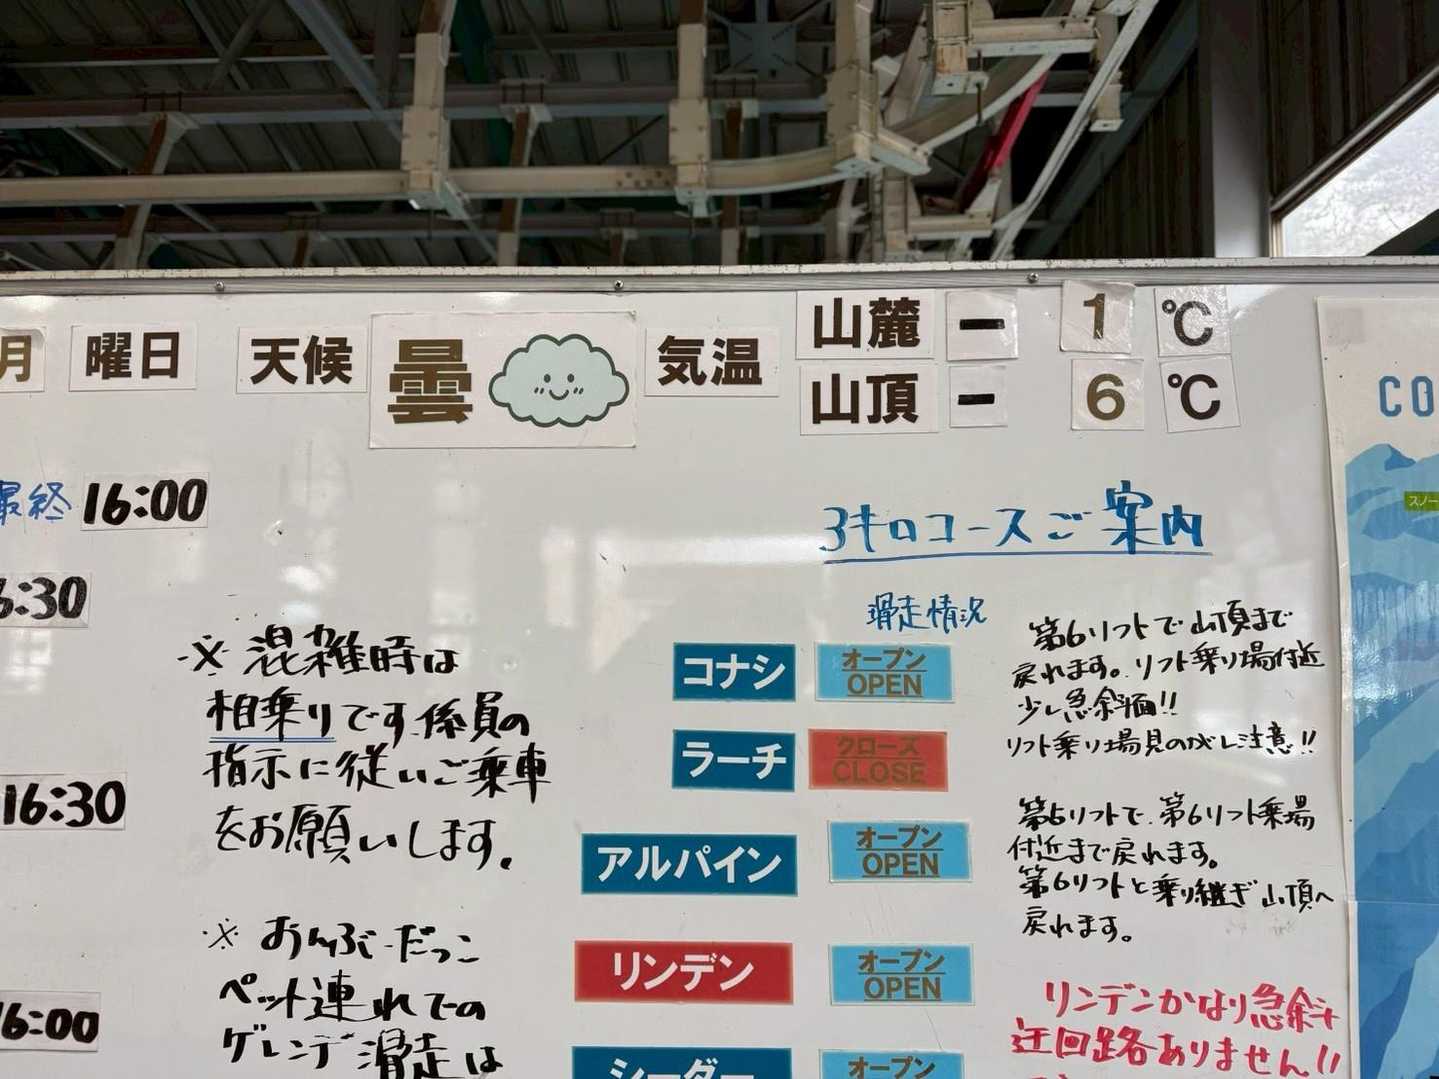 月 曜日 天候 曇 気温 山麓 - 1 ℃
山頂 - 6 ℃
最終 16:00
3キロコースご案内
6:30
※混雑時は
相乗りです係員の
指示に従いご乗車
をお願いします。
16:30
※おんぶ・だっこ
ペット連れでの
ゲレンデ滑走は
6:00
滑走情況
コナシ オープン
OPEN
ラーチ クローズ
CLOSE
アルパイン オープン
OPEN
リンデン オープン
OPEN
シーダー オープン
第6リフトで山頂まで
戻れます。リフト乗り場付近
少し急斜面!!
リフト乗り場見のがし注意!!
第5リフトで、第6リフト乗場
付近まで戻れます。
第6リフトと乗り継ぎ山頂へ
戻れます。
リンデンかなり急斜
迂回路ありません!!
CO
スノー